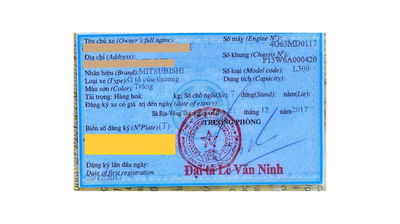 Tên chủ xe (Owner's full name):
Số máy (Engine Nº):
4G63MD0117
Địa chỉ (Address):
Số khung (Chassis Nº):
P13W6A000420
Nhãn hiệu (Brand): MITSUBISHI
Số loại (Model code): L300
Loại xe (Type): Ô tô cứu thương
Dung tích (Capacity):
Màu sơn (Color): Trắng
Tải trọng: Hàng hoá: kg; Số chỗ ngồi(Sit): 7 đứng(Stand): nằm(Lie):
Đăng ký xe có giá trị đến ngày (date of expiry)
Bà Rịa-Vũng tháng 12 năm 2017
TRƯỞNG PHÒNG
Biển số đăng ký (Nº Plate) (T)
Đăng ký lần đầu ngày:
Date of first registration
Đại tá Lê Văn Ninh